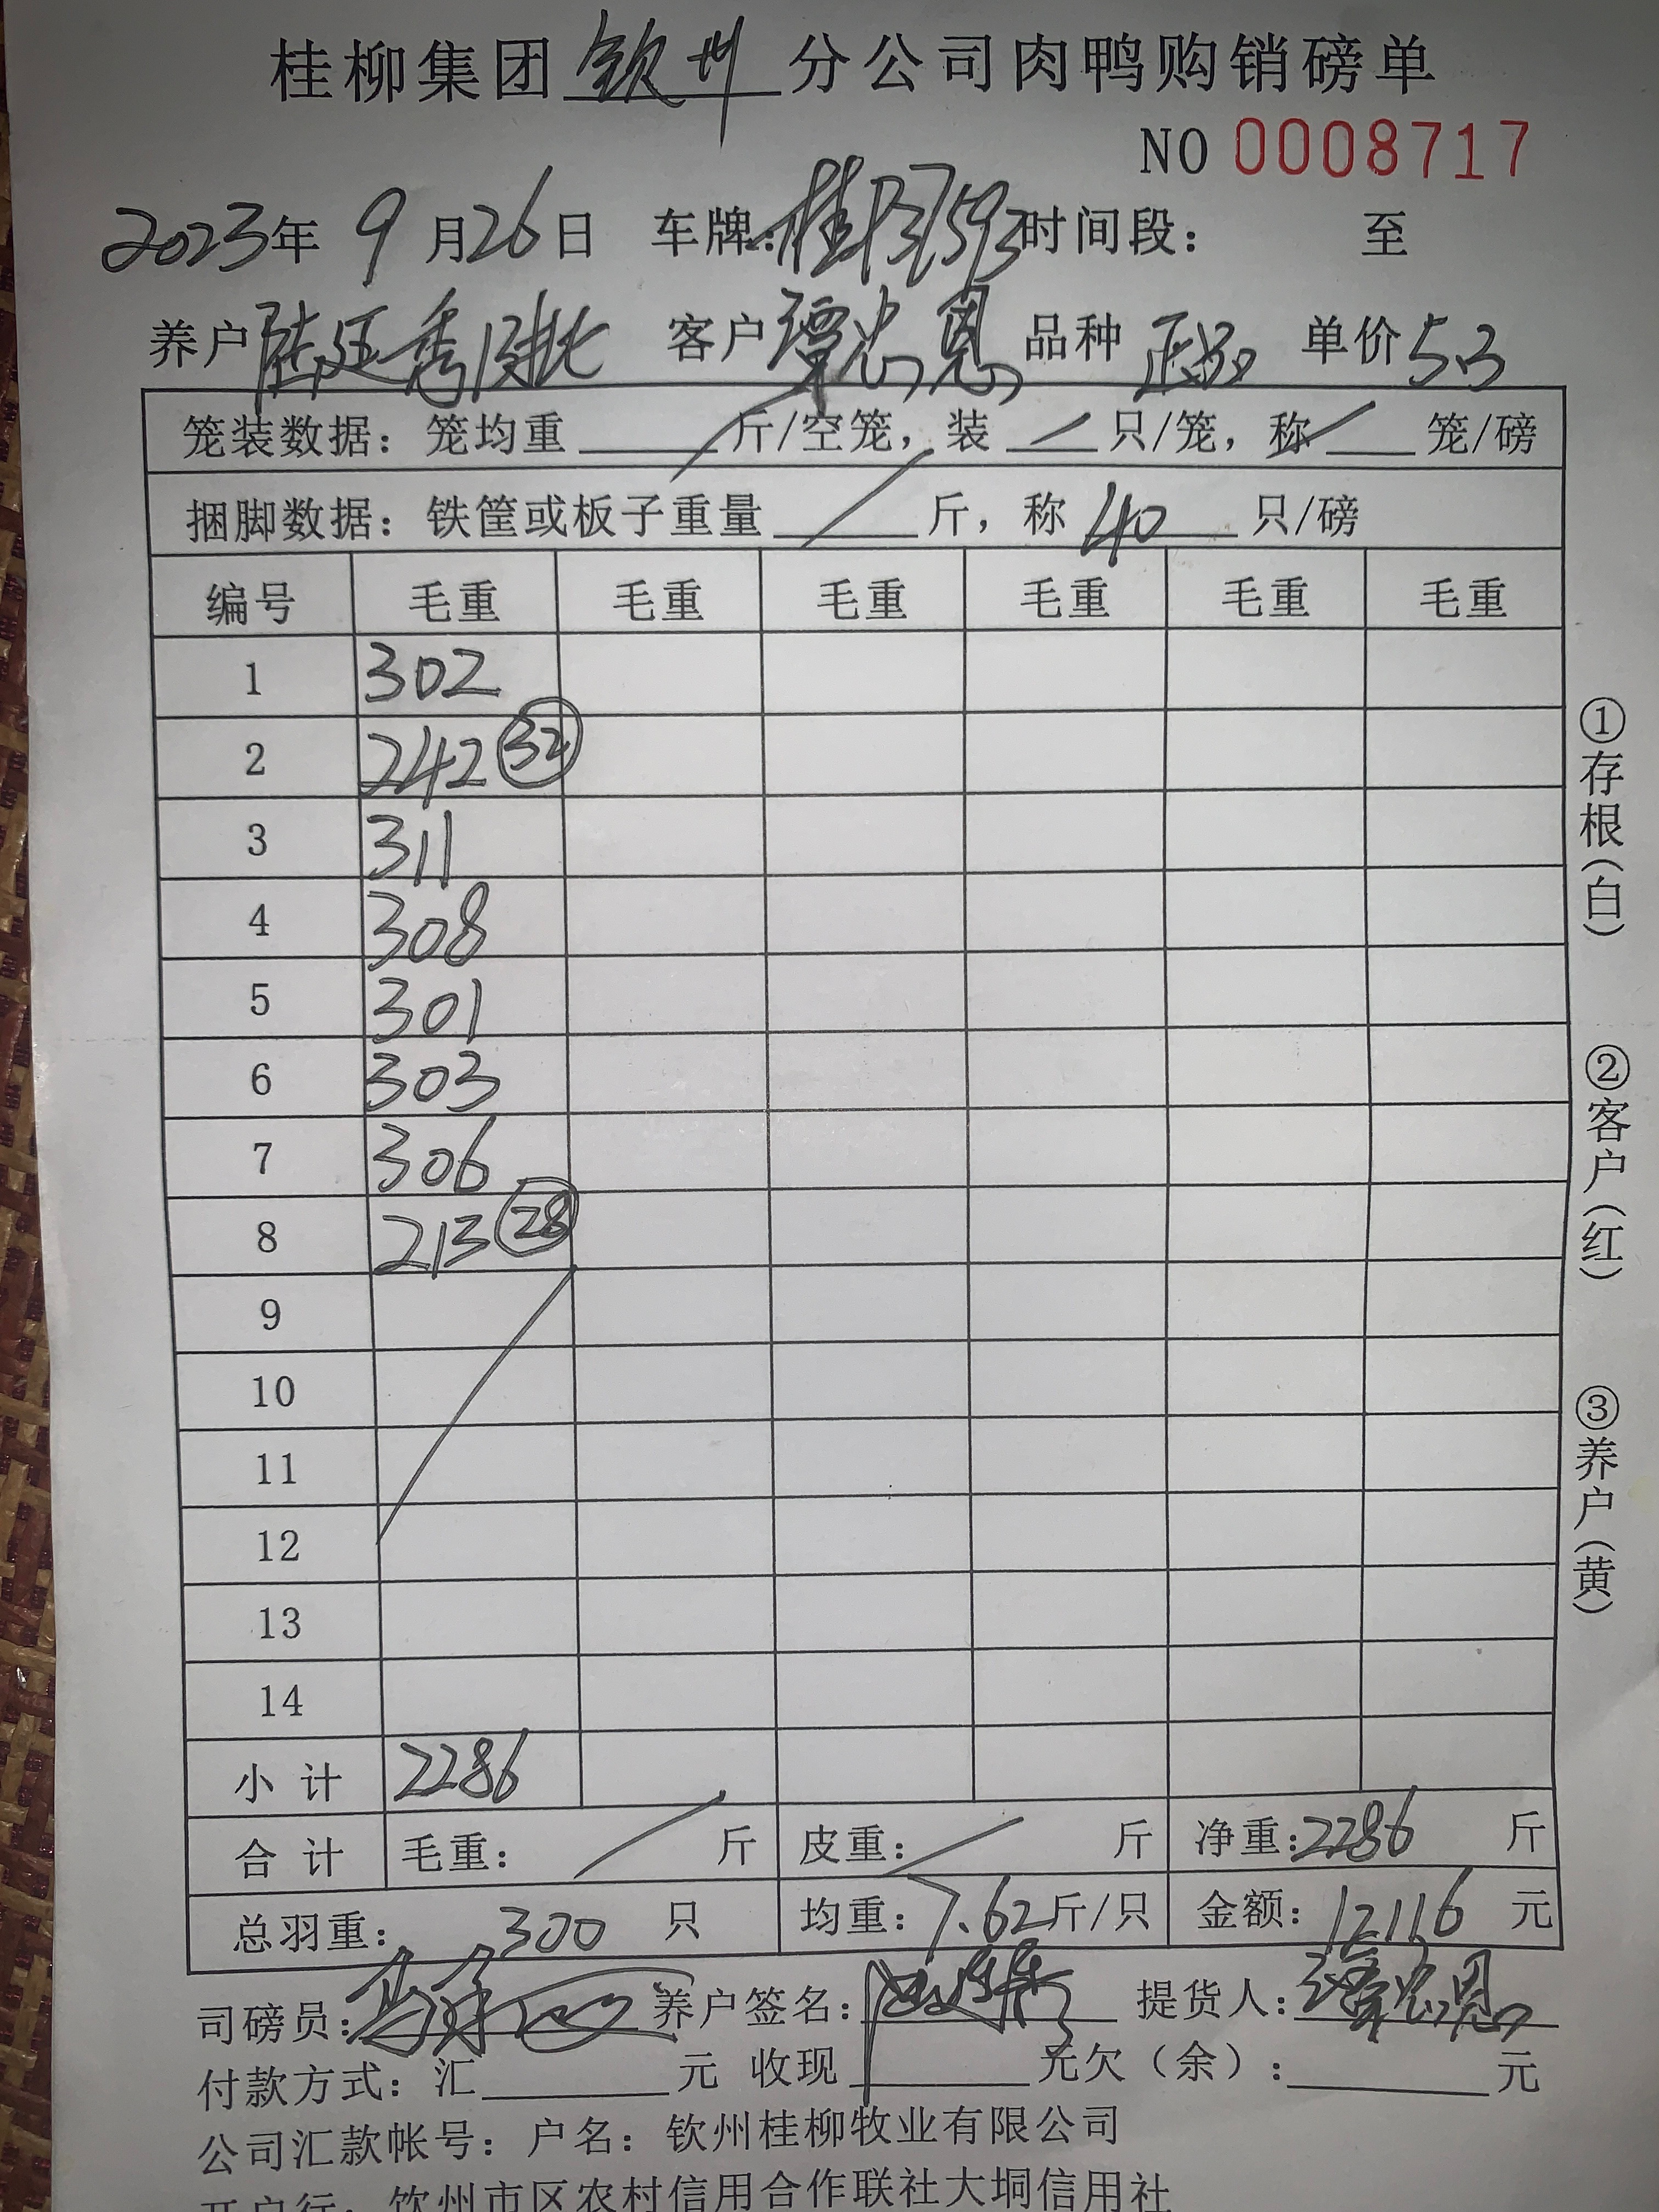 桂柳集团 钦州 分公司肉鸭购销磅单
NO 0008717
2023年 9 月26日 车牌: 时间段: 至
养户 陆廷秀 客户 覃忠恩 品种 单价 5.3
笼装数据: 笼均重 斤/空笼, 装 只/笼, 称 笼/磅
捆脚数据: 铁筐或板子重量 斤, 称 40 只/磅
编号 毛重 毛重 毛重 毛重 毛重 毛重
1 302
2 242 32
3 311
4 308
5 301
6 303
7 306
8 213 28
9
10
11
12
13
14
小计 2286
合计 毛重: 斤 皮重: 斤 净重: 2286 斤
总羽重: 300 只 均重: 7.62斤/只 金额: 12116 元
司磅员: 养户签名: 提货人: 覃忠恩
付款方式: 汇 元 收现 元欠(余): 元
公司汇款帐号: 户名: 钦州桂柳牧业有限公司
开户行: 钦州市区农村信用合作联社大垌信用社
①存根(白) ②客户(红) ③养户(黄)